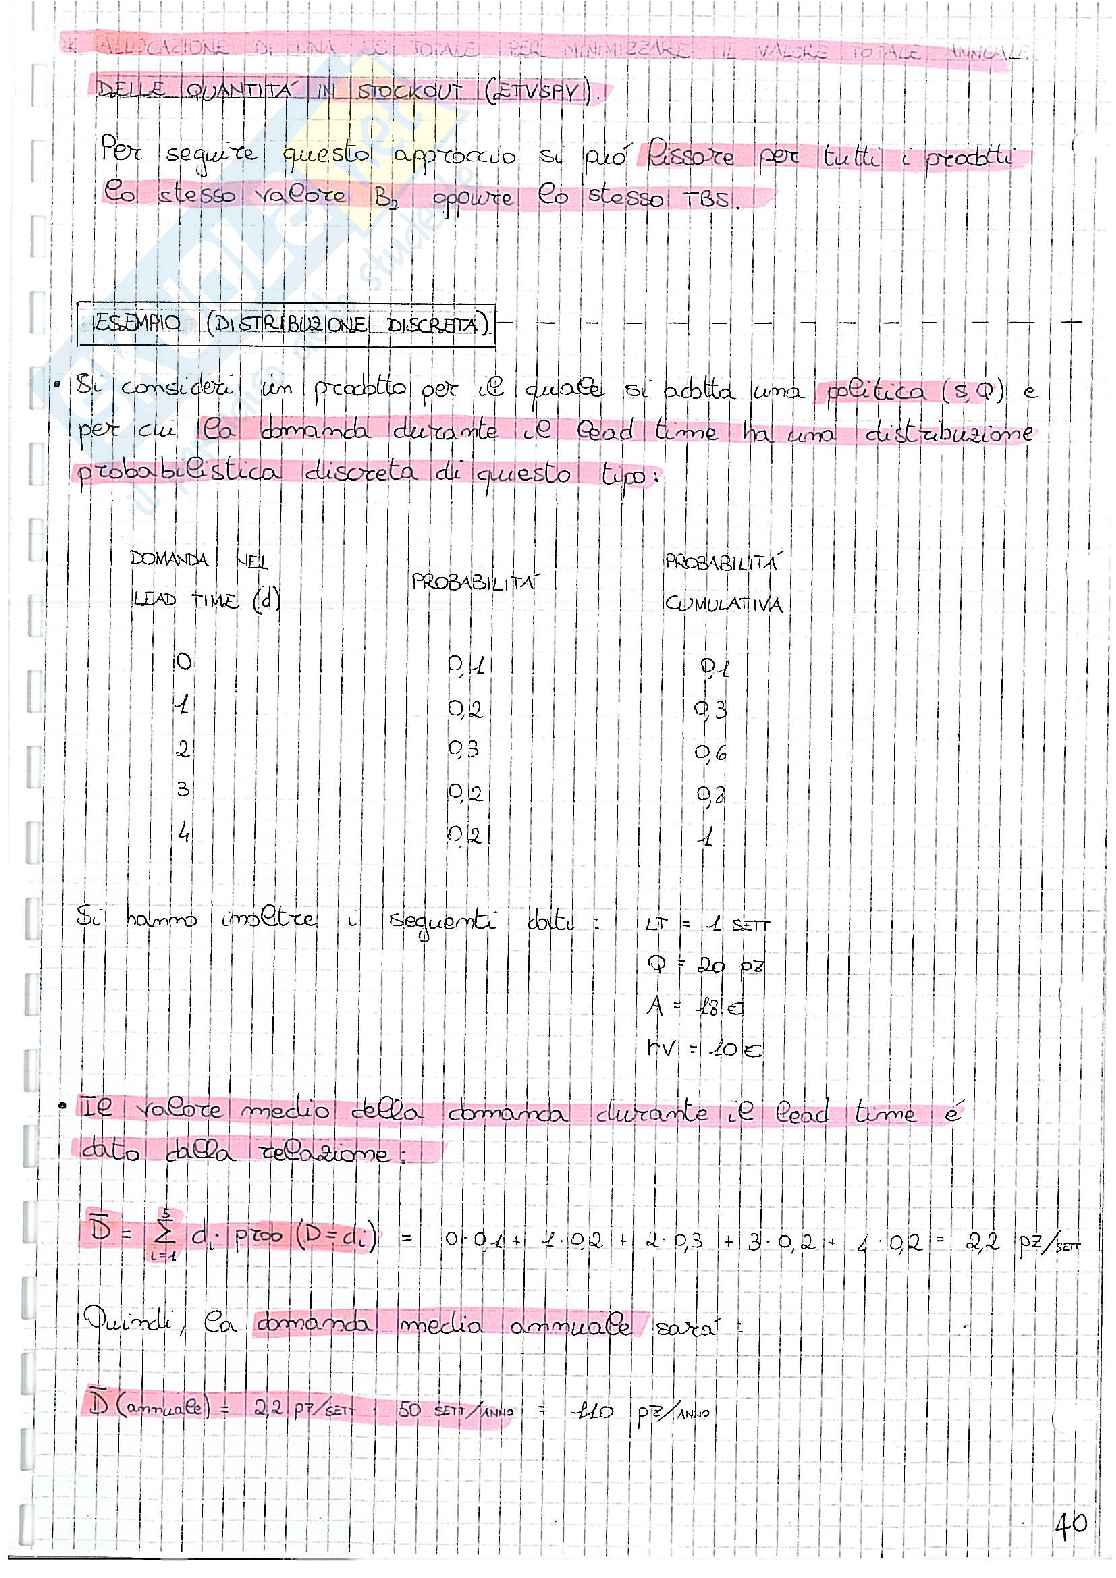 * ALLOCAZIONE DI UNA SS TOTALE PER MINIMIZZARE IL VALORE TOTALE ANNUALE
DELLE QUANTITÀ IN STOCKOUT (ETVSPY).
Per seguire questo approccio si può fissare per tutti i prodotti
lo stesso valore B₂ oppure lo stesso TBS.
ESEMPIO (DISTRIBUZIONE DISCRETA)
• Si consideri un prodotto per il quale si adotta una politica (s,Q) e
per cui la domanda durante il lead time ha una distribuzione
probabilistica discreta di questo tipo:
DOMANDA NEL LEAD TIME (d) PROBABILITÁ PROBABILITÁ CUMULATIVA
0 0,1 0,1
1 0,2 0,3
2 0,3 0,6
3 0,2 0,8
4 0,2 1
Si hanno inoltre i seguenti dati: LT = 1 SETT
Q = 20 pz
A = 18 €
rv = 10 €
• Il valore medio della domanda durante il lead time é
dato dalla relazione:
D̄ = Σ⁵ᵢ₌₁ dᵢ · prob (D=dᵢ) = 0·0,1 + 1·0,2 + 2·0,3 + 3·0,2 + 4·0,2 = 2,2 pz/SETT
Quindi, la domanda media annuale sará:
D̄ (annuale) = 2,2 pz/SETT · 50 SETT/ANNO = 110 pz/ANNO
40